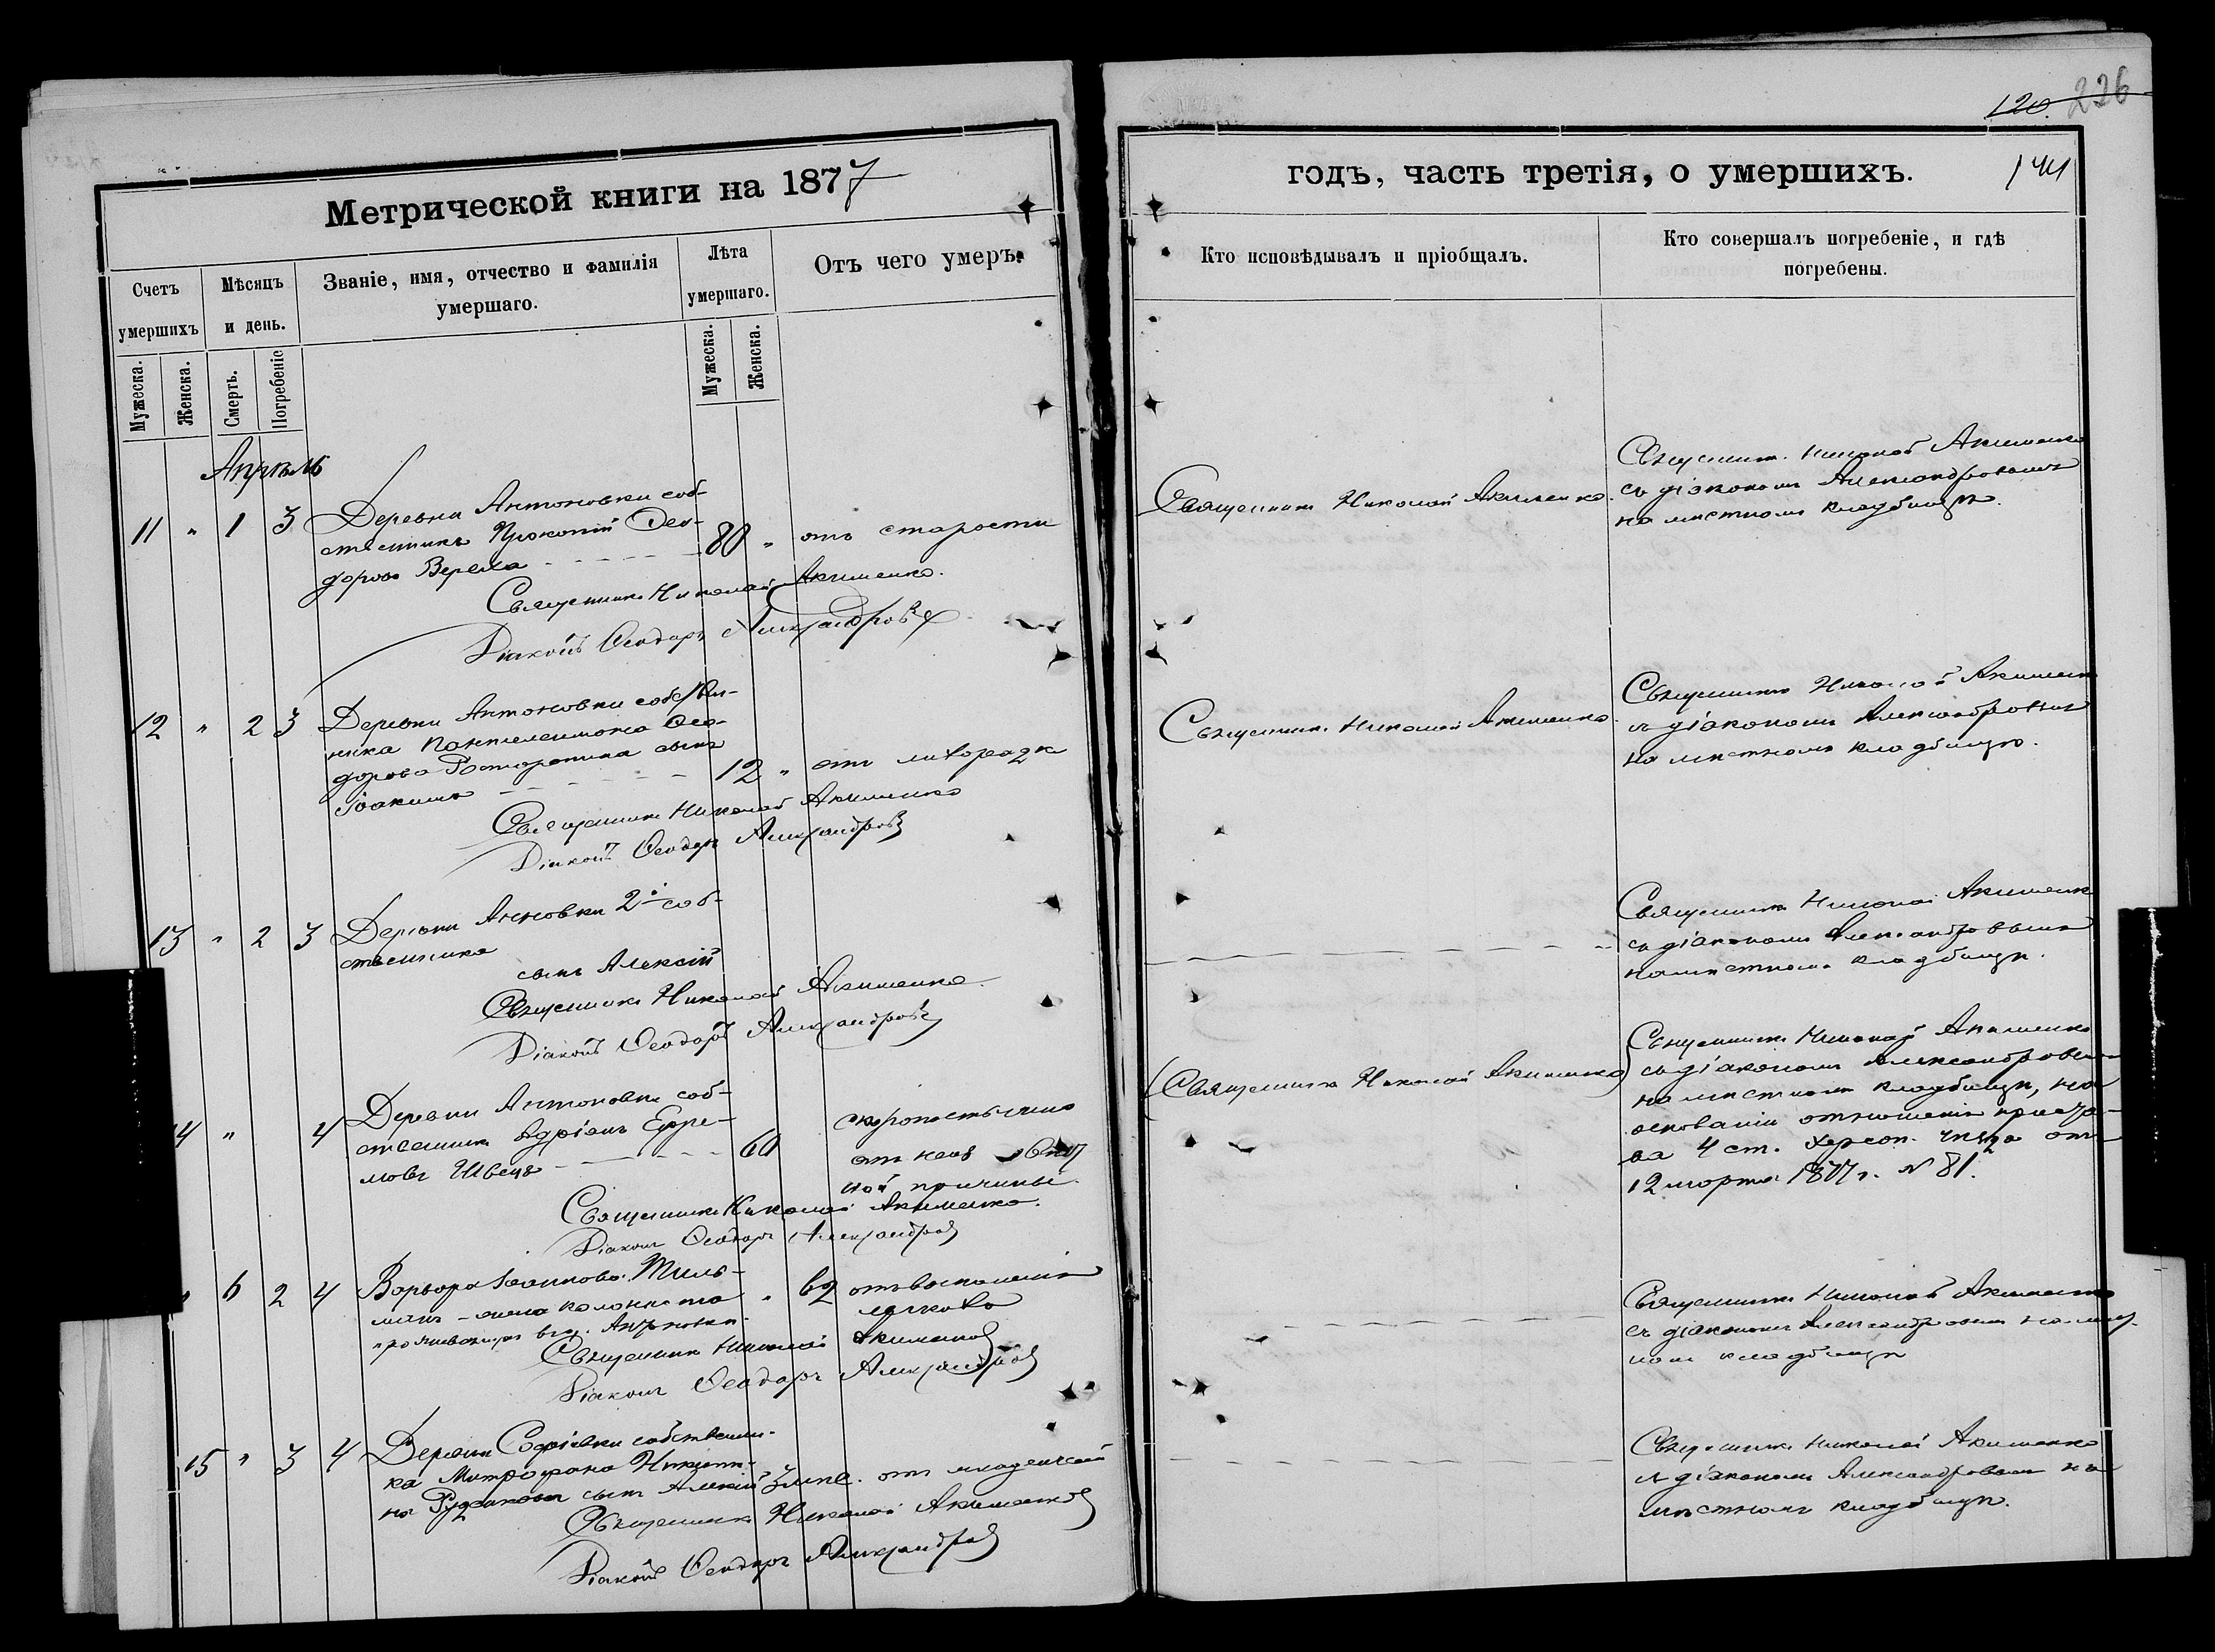 120. 226
Метрической книги на 1877
годъ, часть третія, о умершихъ.
141
Счетъ умершихъ
Мѣсяцъ и день.
Званіе, имя, отчество и фамилія умершаго.
Лѣта умершаго.
Отъ чего умеръ.
Кто исповѣдывалъ и пріобщалъ.
Кто совершалъ погребеніе, и гдѣ погребены.
Мужеска.
Женска.
Смерть.
Погребеніе
Мужеска.
Женска.
Апрѣль
11 " 1 3
Деревни Антоновки соб-
ственникъ Прокопій Ѳео-
доровъ
80 " отъ старости
Священникъ Николай Акименко.
Діаконъ Ѳеодоръ Александровъ
Священникъ Николай Акименко.
Священник. Николай Акименко
съ діакономъ Александровымъ
на мѣстномъ кладбищѣ.
12 " 2 3
Деревни Антоновки собствен-
ника Пантелеимона Ѳео-
дорова сынъ
Іоакимъ
12 " отъ
Священникъ Николай Акименко
Діаконъ Ѳеодоръ Александровъ
Священникъ Николай Акименко.
Священникъ Николай Акименко
съ діакономъ Александровымъ
на мѣстномъ кладбищѣ.
13 " 2 3
Деревни Анновки 2й соб-
ственника
сынъ Алексій
Священникъ Николай Акименко.
Діаконъ Ѳеодоръ Александровъ
Священникъ Николай Акименко
съ діакономъ Александровымъ
на мѣстномъ кладбищѣ.
14 " 4
Деревни Антоновки соб-
ственникъ Адріанъ Ефре-
мовъ Швецъ
60
скоропостижно
отъ
ной причины.
Священникъ Николай Акименко.
Діаконъ Ѳеодоръ Александровъ
(Священникъ Николай Акименко)
Священникъ Николай Акименко
съ діакономъ Александровымъ
на мѣстномъ кладбищѣ, на
основаніи отношенія приста-
ва 4 ст. Херсон. уѣзда отъ
12 марта 1877 г. № 81.
" 6 2 4
Варвара Іоаннова
жена колониста
" 62 отъ воспаленія
Священникъ Николай Акименко
Діаконъ Ѳеодоръ Александровъ
Священникъ Николай Акименко
съ діакономъ Александровымъ на мѣст-
номъ кладбищѣ
15 " 3 4
Деревни Софіевки собственни-
ка Митрофана
сынъ Алексій 3 отъ младенческой
Священникъ Николай Акименко
Діаконъ Ѳеодоръ Александровъ
Священникъ Николай Акименко
съ діакономъ Александровымъ на
мѣстномъ кладбищѣ.